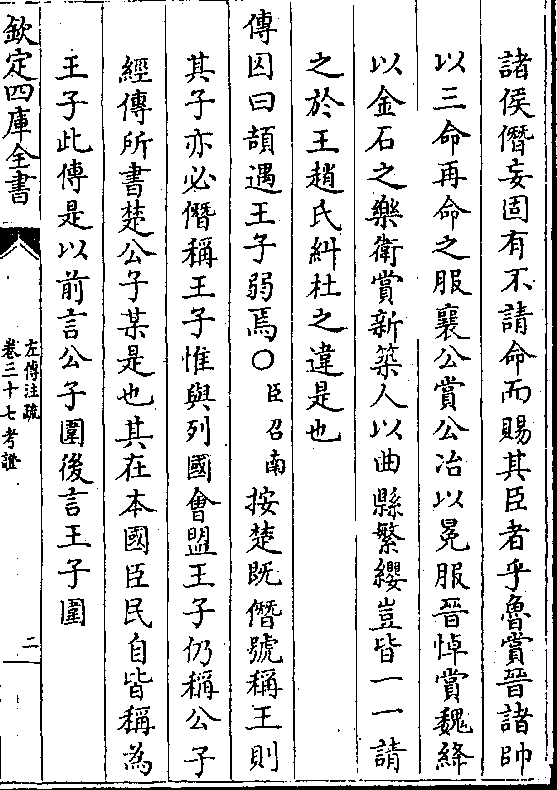 諸侯僭妄固有不請命而賜其臣者乎魯賞晉諸帥
以三命再命之服襄公賞公冶以冕服晉悼賞魏絳
以金石之樂衛賞新築人以曲縣繁纓豈皆一一請
之於王趙氏糾杜之違是也
傳囚曰頡遇王子弱焉○臣召南按楚既僭號稱王則
其子亦必僭稱王子惟與列國會盟王子仍稱公子
經傳所書楚公子某是也其在本國臣民自皆稱為
王子此傳是以前言公子圍後言王子圍
欽定四庫全書
左傳注疏
卷三十七考證
二